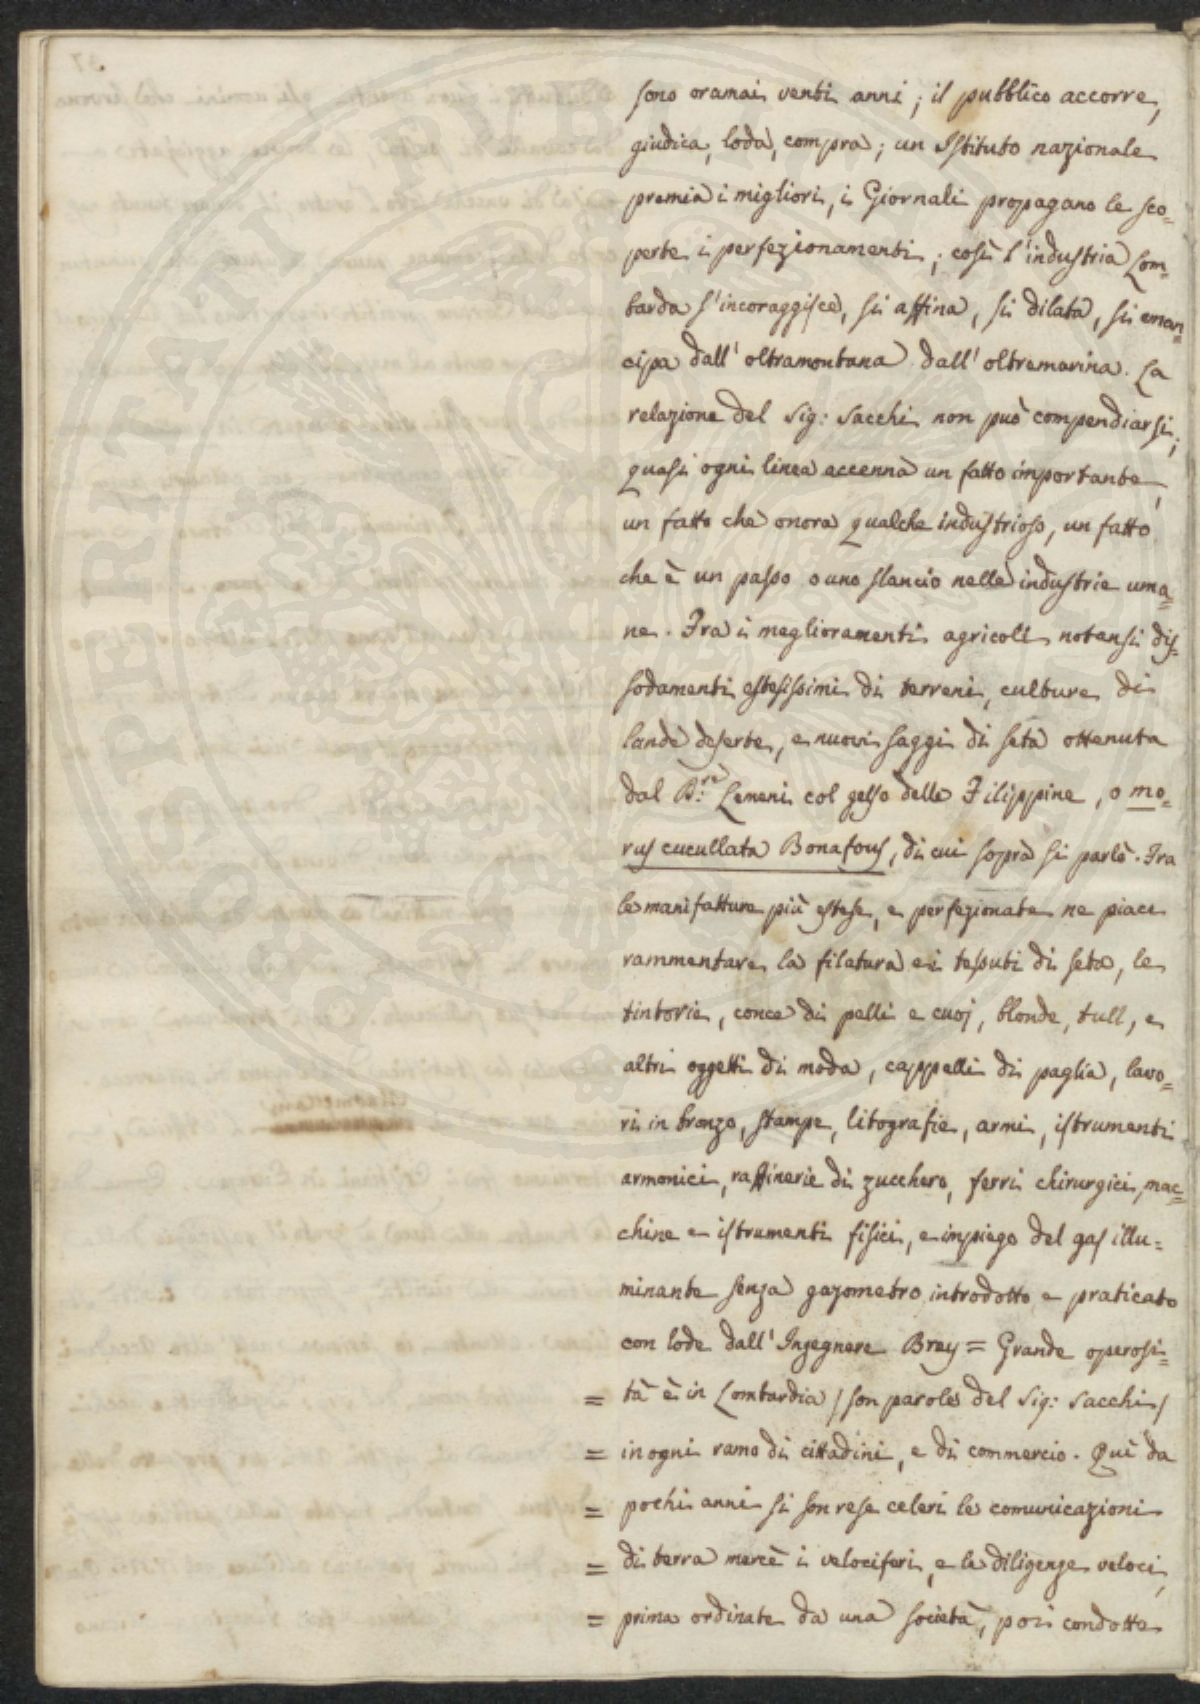 sono oramai venti anni; il pubblico accorre,
giudica, loda, compra; un Istituto nazionale
premia i migliori, i Giornali propagano le sco=
perte i perfezionamenti; così l'industria Lom=
barda s'incoraggisce, si affina, si dilata, si eman=
cipa dall'oltramontana dall'oltremarina. La
relazione del Sig: Sacchi non può compendiarsi;
quasi ogni linea accenna un fatto importante,
un fatto che onora qualche industrioso, un fatto
che è un passo o uno slancio nelle industrie uma=
ne. Fra i meglioramenti agricoli notansi dis=
sodamenti estesissimi di terreni, culture di
lande deserte, e nuovi saggi di seta ottenuta
dal B:ne Lemeni col gelso delle Filippine, o mo=
rus cucullata Bonafous, di cui sopra si parlò. Fra
le manifatture più estese, e perfezionate ne piace
rammentare la filatura e i tessuti di seta, le
tintorie, conce di pelli e cuoj, blonde, tull, e
altri oggetti di moda, cappelli di paglia, lavo=
ri in bronzo, stampe, litografie, armi, istrumenti
armonici, raffinerie di zucchero, ferri chirurgici, mac=
chine e istrumenti fisici, e impiego del gas illu=
minante senza gazometro introdotto e praticato
con lode dall'Ingegnere Brey = Grande operosi=
= tà è in Lombardia /son parole del Sig: Sacchi/
= in ogni ramo di cittadini, e di commercio. Quì da
= pochi anni si son rese celeri le comunicazioni
= di terra mercè i velociferi, e le diligenze veloci,
= prima ordinate da una società, poi condotte